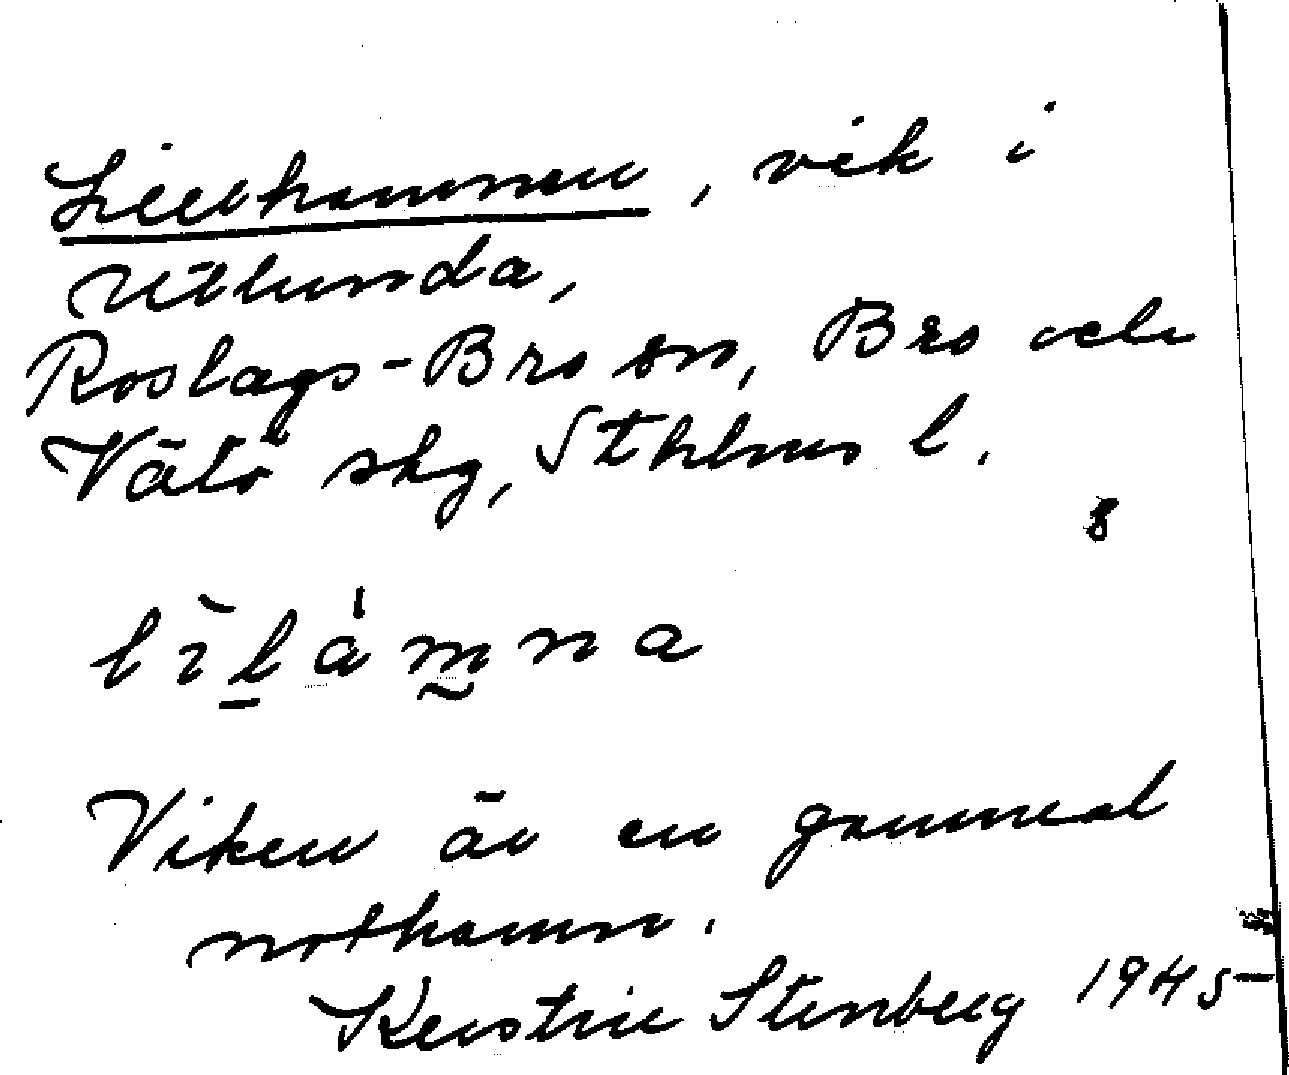 Lillhamnen, vik i
Utlunda,
Roslags-Bro sn, Bro och
Vätö skg, Sthlms l.
lìḻám̰na
Viken är en gammal
nothamn.
Kerstin Stenberg 1945